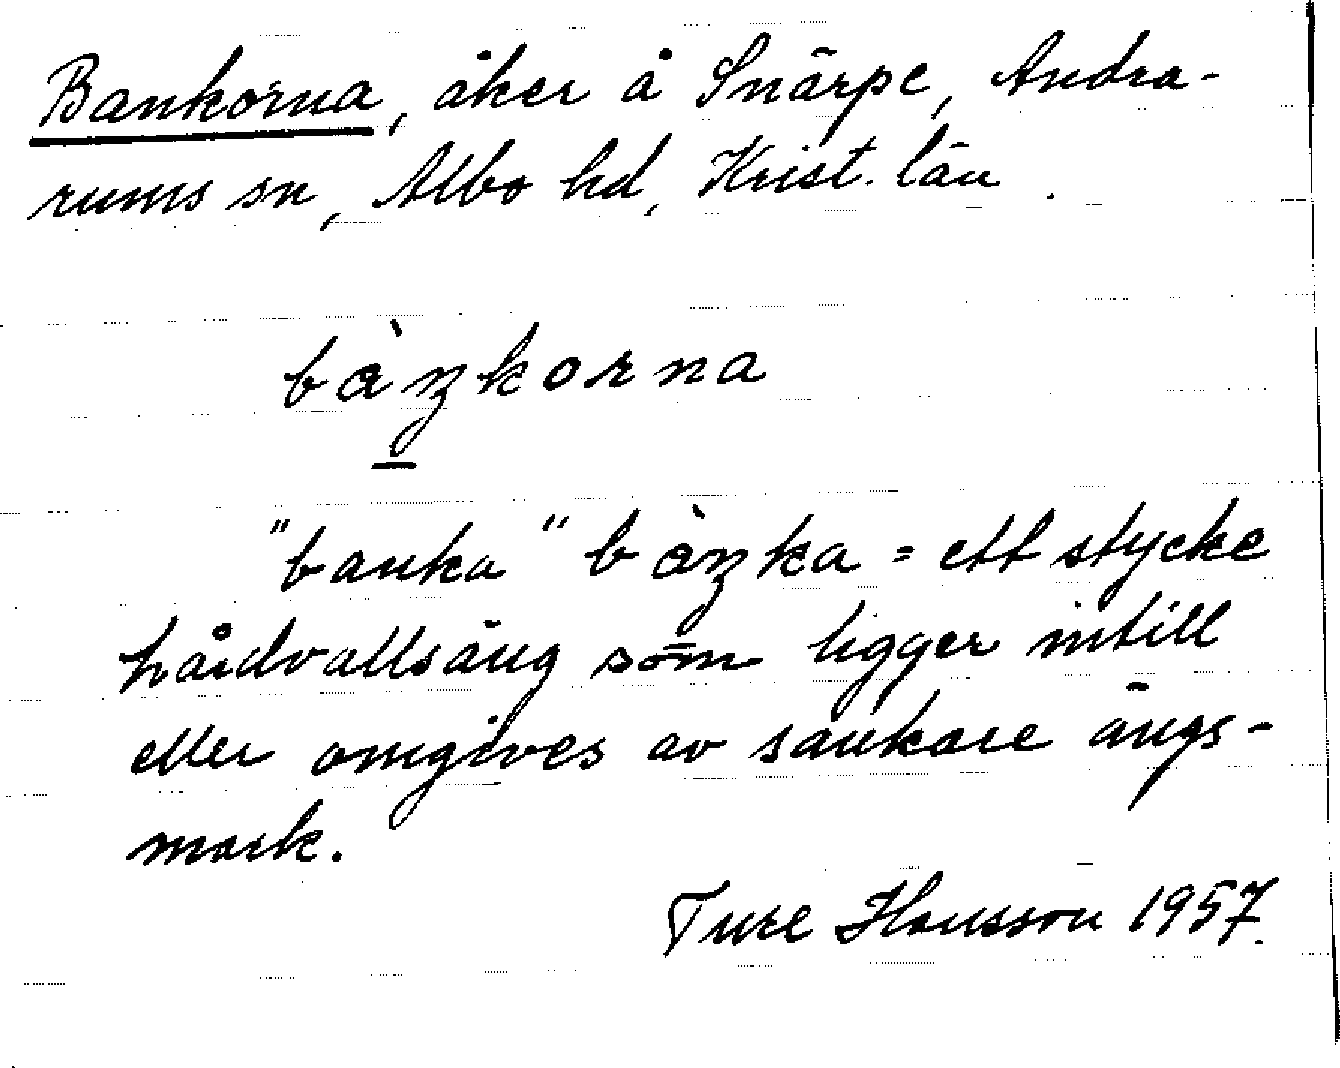 Bankorna, åker å Snärpe, Andra-
rums sn, Albo hd, Krist. län.
bàŋkorna
"banka" bàŋka = ett stycke
hårdvallsäng som ligger intill
eller omgives av sankare ängs-
mark.
Ture Hansson 1957.